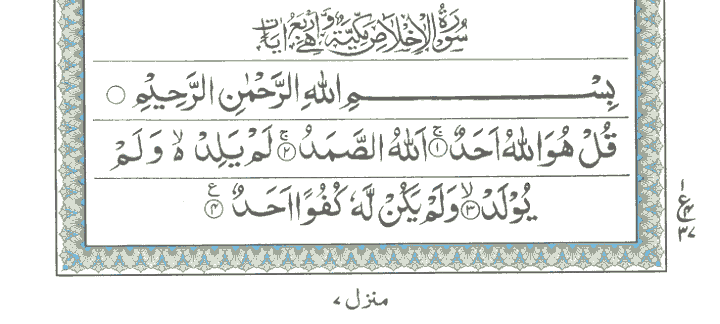 سُوْرَةُ الْاِخْلَاصِ مَكِّيَّةٌ وَّهِيَ اَرْبَعُ اٰيَاتٍ
بِسْمِ اللهِ الرَّحْمٰنِ الرَّحِيْمِ ○
قُلْ هُوَ اللهُ اَحَدٌ ۚ۝۱ اَللهُ الصَّمَدُ ۚ۝۲ لَمْ يَلِدْ ەۙ وَلَمْ
يُوْلَدْ ۙ۝۳ وَلَمْ يَكُنْ لَّهٗ كُفُوًا اَحَدٌ ۝۴ع
۱
ع۴
۳۷
منزل ۷